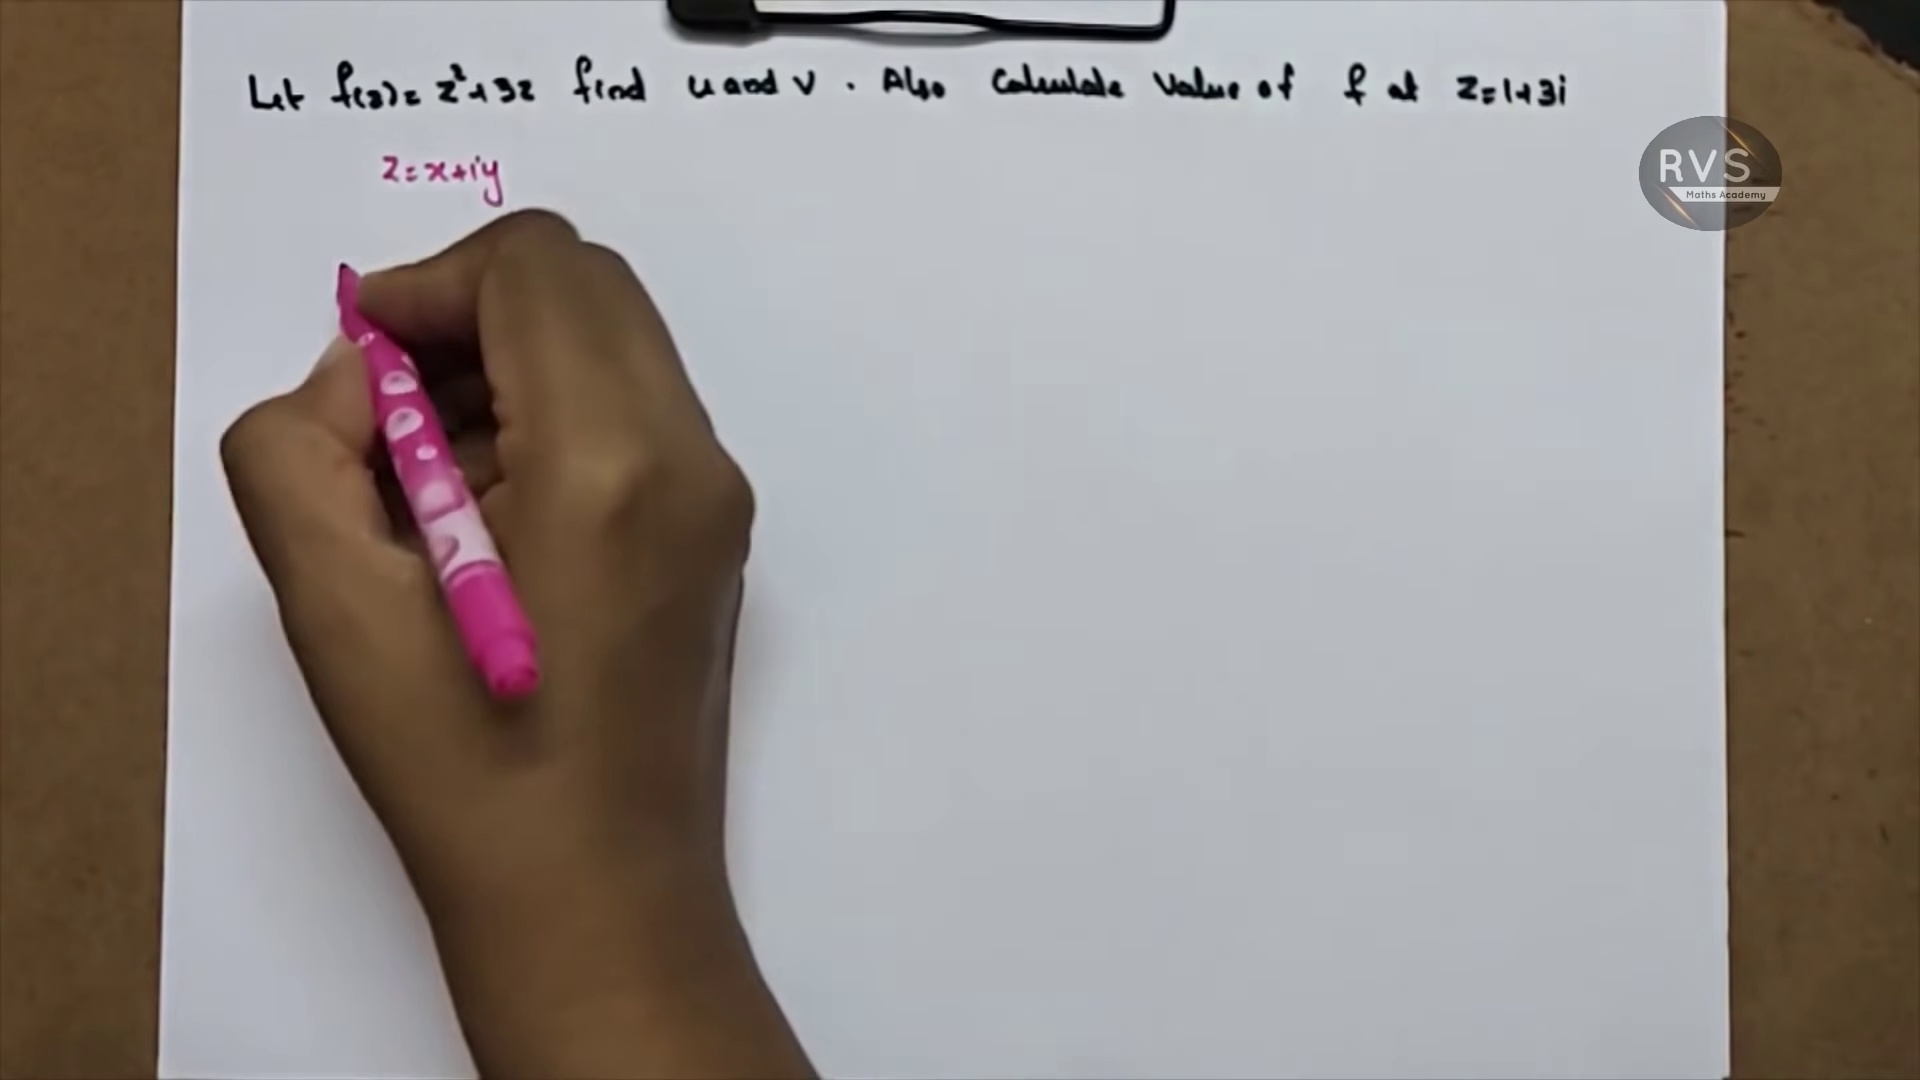 Let f(z) = z²+3z find u and v . Also Calculate Value of f at z=1+3i
z=x+iy
RVS
Maths Academy